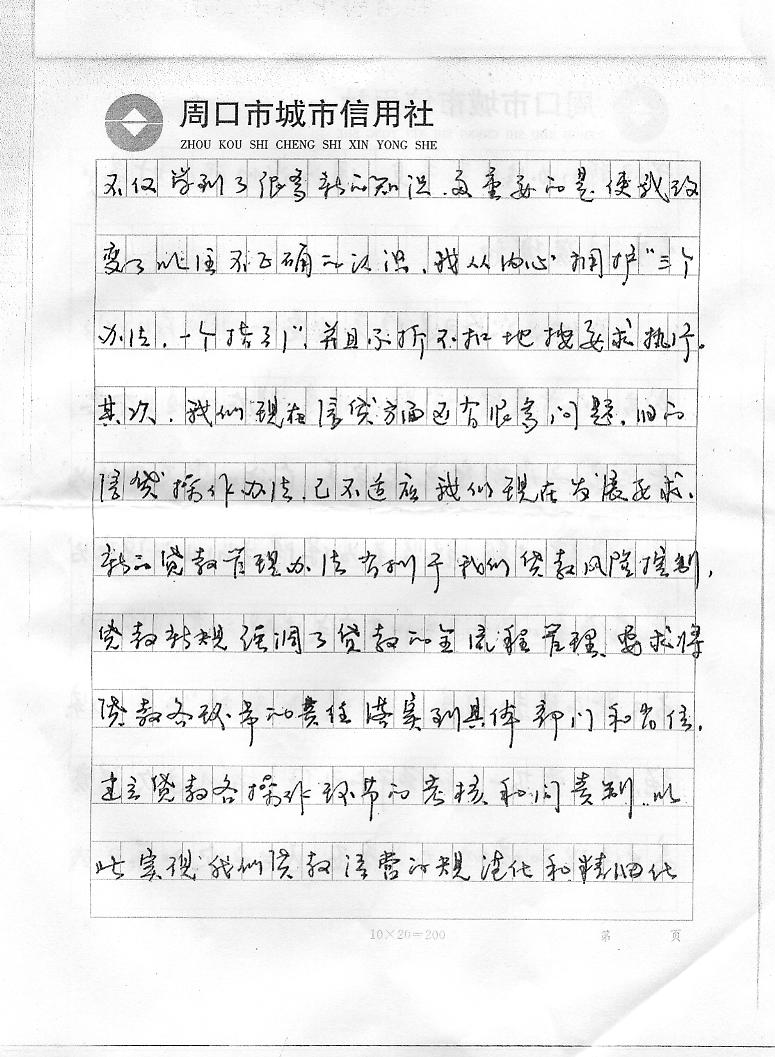 周口市城市信用社
ZHOU KOU SHI CHENG SHI XIN YONG SHE
不仅学到了很多新的知识,更重要的是使我改
变了以往不正确的认识,我从内心拥护"三个
办法,一个指引",并且不折不扣地按要求执行。
其次,我们现在信贷方面还有很多问题,旧的
信贷操作办法,已不适应我们现在发展要求,
新的贷款管理办法有利于我们贷款风险控制,
贷款新规强调了贷款的全流程管理、要求将
贷款各环节的责任落实到具体部门和岗位,
建立贷款各操作环节的考核和问责制,以
此实现我们贷款经营的规范化和精细化
10×20=200
第 页